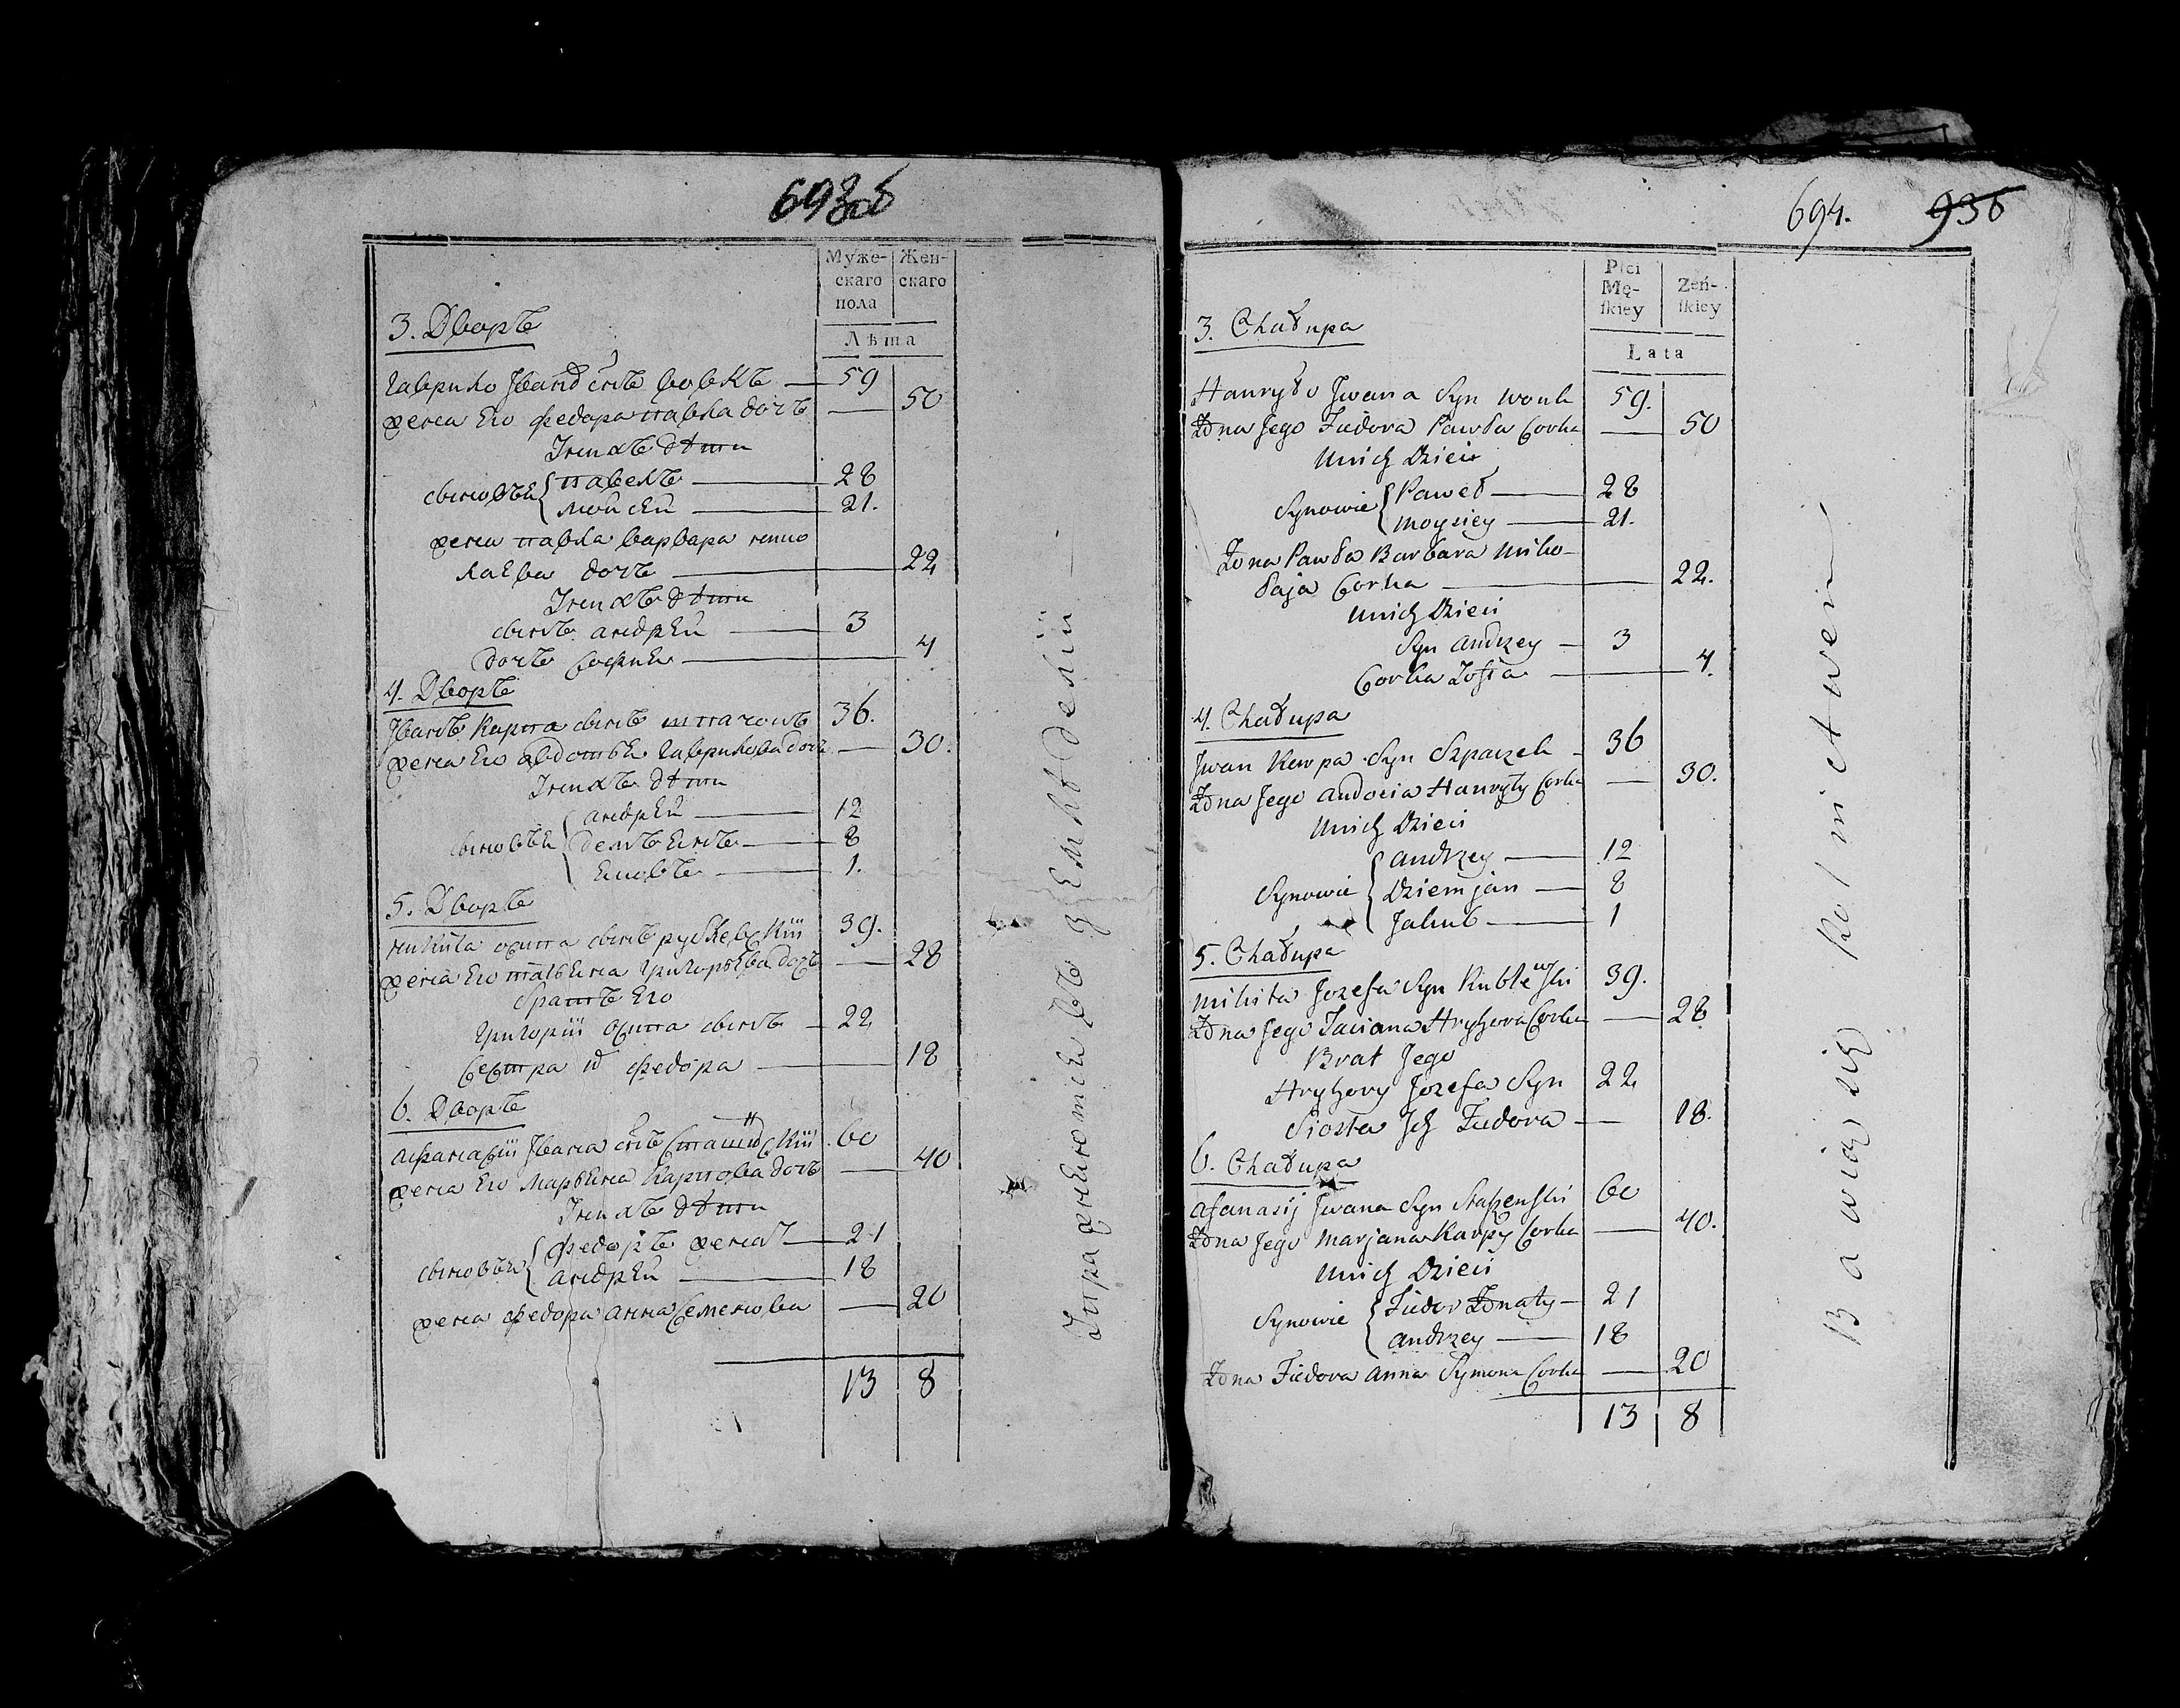 693об
Муже-
скаго
пола
Жен-
скаго
Лѣта
3. Дворъ
Гаврило Иванов сынъ вовкъ — 59
жена Его федора павла дочъ — 50
У них дѣти
сыновьѣ { павелъ — 28
мойсей — 21.
жена павла варвара нико
лаева дочъ — 22
У них дѣти
сынъ андрей — 3
дочъ софия — 4
4. Дворъ
Иванъ Карпа сынъ шпачокъ 36.
жена Его авдотья Гаврилова дочъ — 30.
У них дѣти
андрей — 12
сыновьѣ { демьянъ — 8
яковъ — 1.
5. Дворъ
никита осипа сынъ рублевскій 39.
жена Его татьяна григорьева дочъ — 28
братъ Его
григорій осипа сынъ — 22
сестра их федора — 18
6. Дворъ
афанасій Ивана сынъ сташевскій 60
жена Его марьяна Карпова дочъ — 40
У них дѣти
сыновья { федоръ женат — 21
андрей — 18
жена федора анна семенова — 20
13 8
Упражняются въ земледелии —
694. 936
Płci
Mę-
ſkiey
Zeń-
ſkiey
Lata
3. Chałupa
Hauryło Jwana Syn Wouk 59.
Żona Jego Fiedora Pawła Corka — 50
Unich Dzieci
Synowie { Paweł — 28
Moysiey — 21.
Żona Pawła Barbara Miko-
łaja Corka — 22.
Unich Dzieci
Syn Andrzey — 3
Corka Zofia — 4.
4. Chałupa
Jwan Karpa Syn Szpaczek — 36
Żona Jego Audocia Hauryły Corka — 30.
Unich Dzieci
Andrzey — 12
Synowie { Dziemjan — 8
Jakub — 1
5. Chałupa
Mikita Jozefa Syn Rublewſki 39.
Żona Jego Taciana Hryhora Corka — 28
Brat Jego
Hryhory Jozefa Syn 22
Siostra Jch Fiedora — 18.
6. Chałupa
Afanasij Jwana Syn Staszewſki 60
Żona Jego Marjana Karpy Corka — 40.
Unich Dzieci
Synowie { Fiedor Żonaty — 21
Andrzey — 18
Żona Fiedora Anna Symona Corka — 20
13 8
Bawią się Rolnictwem